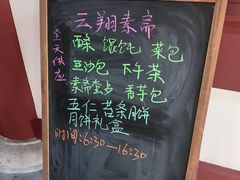 云翔素斋
全天供应
酥 馄饨 菜包
豆沙包 下午茶
素斋套点 香芋包
五仁苔条月饼
月饼礼盒
时间:6:30—16:30